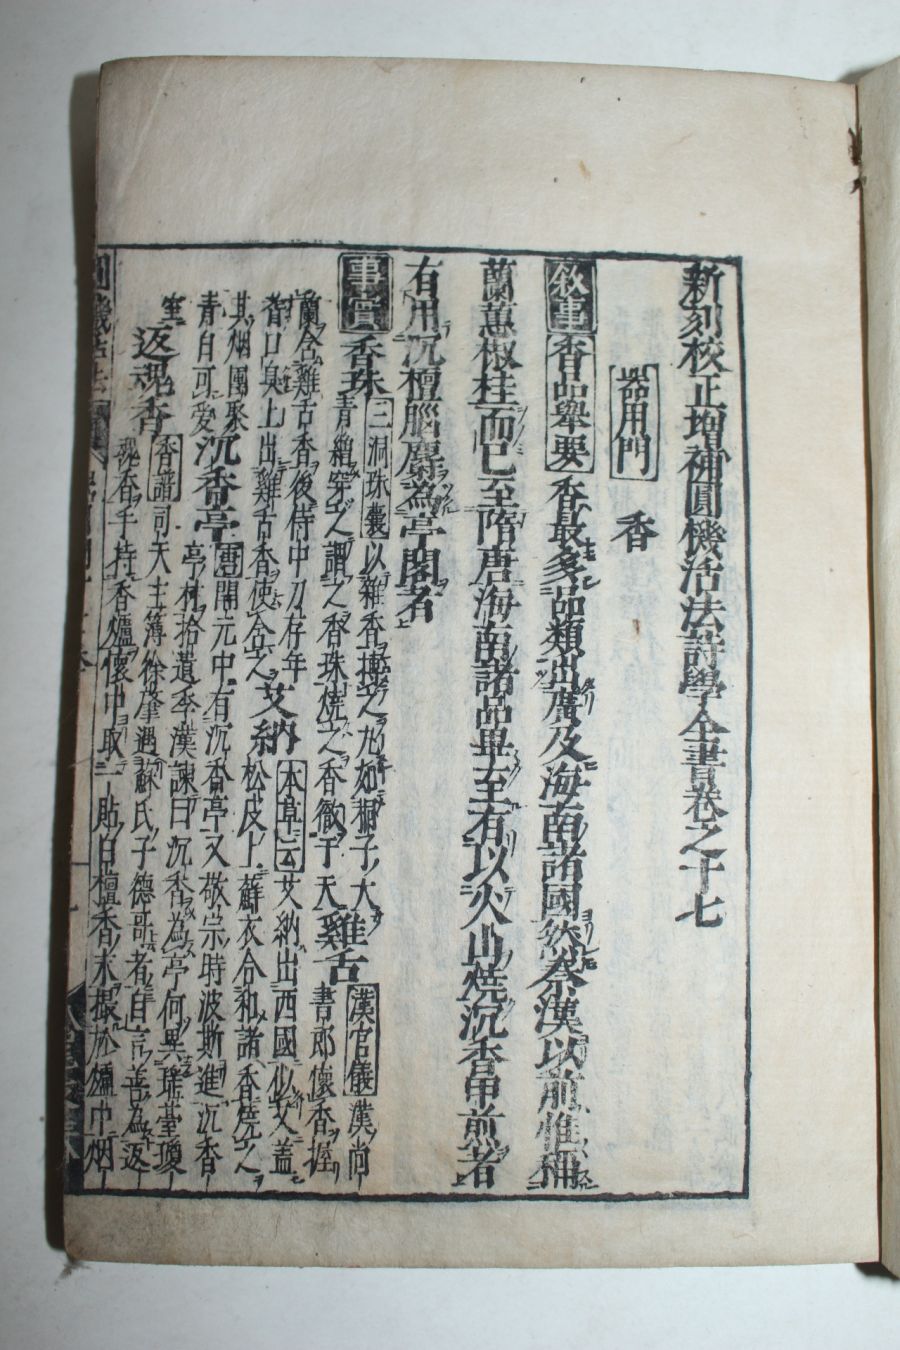 新刻校正增補圓機活法詩學全書卷之十七
器用門 香
敘事 香品舉要 香最多品類出廣及海南諸國然秦漢以前惟稱
蘭蕙椒桂而已至隋唐海南諸品畢至有以火山燒沉香甲煎者
有用沉檀腦麝為亭閣者
事實 香珠 三洞珠囊 以雜香擣之丸如桐子大
青繒穿之謂之香珠燒之香徹于天 雞舌 漢官儀 漢尚
書郎懷香握
蘭含雞舌香後侍中刀存年
耆口臭上出雞舌香使含之 艾納 本草云 艾納出西國似艾蓋
松皮上蘚衣合和諸香燒之
其烟團聚
青白可愛 沉香亭 開元中有沉香亭又敬宗時波斯進沉香
亭材拾遺李漢諫曰沉香為亭何異瑤臺瓊
室 返魂香 香譜 司天主簿徐肇遇蘇氏子德哥者自言善為返
魂香手持香爐懷中取一貼白檀香末撮於爐中烟